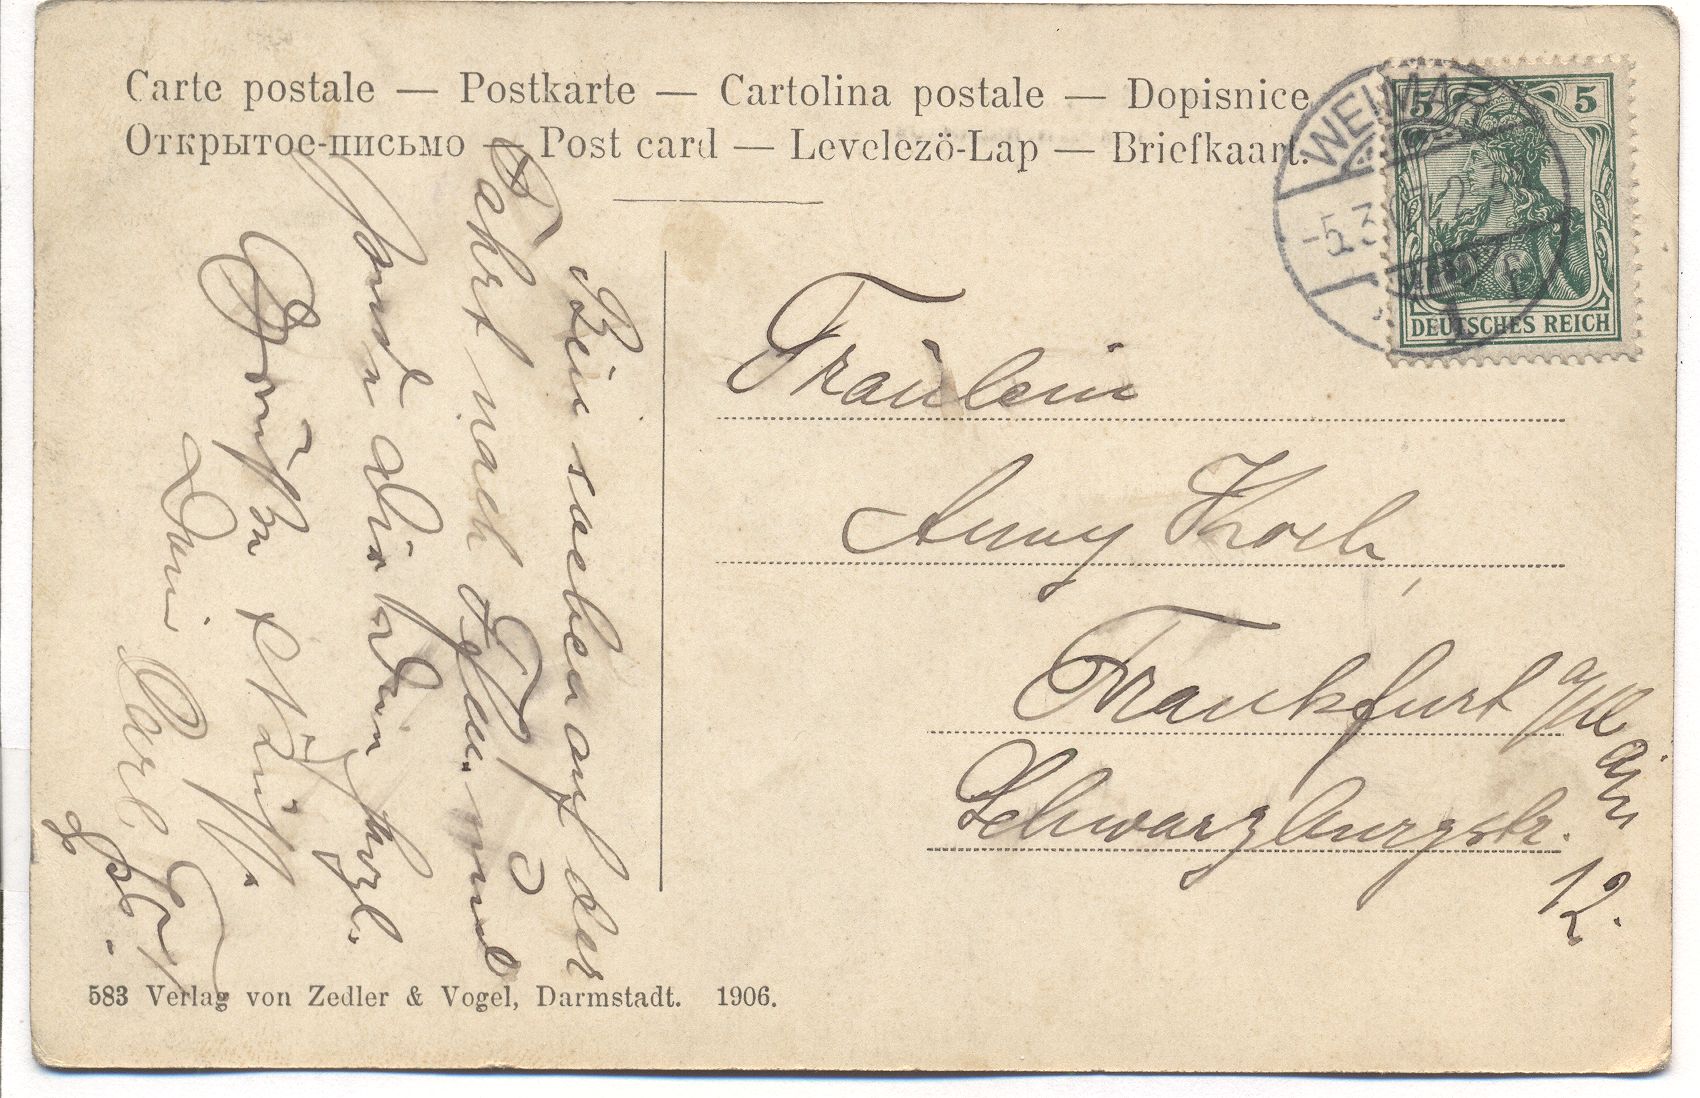 Carte postale — Postkarte — Cartolina postale — Dopisnice
Открытое-письмо — Post card — Levelezö-Lap — Briefkaart.
WEIMAR
-5.3.
5
5
DEUTSCHES REICH
Fräulein
Anny Koch,
Frankfurt a/Main
Schwarzburgstr.
12.
Bin soeben auf der
Fahrt nach und
sende dir die herzl.
Grüße
Dein Carl
583 Verlag von Zedler & Vogel, Darmstadt. 1906.